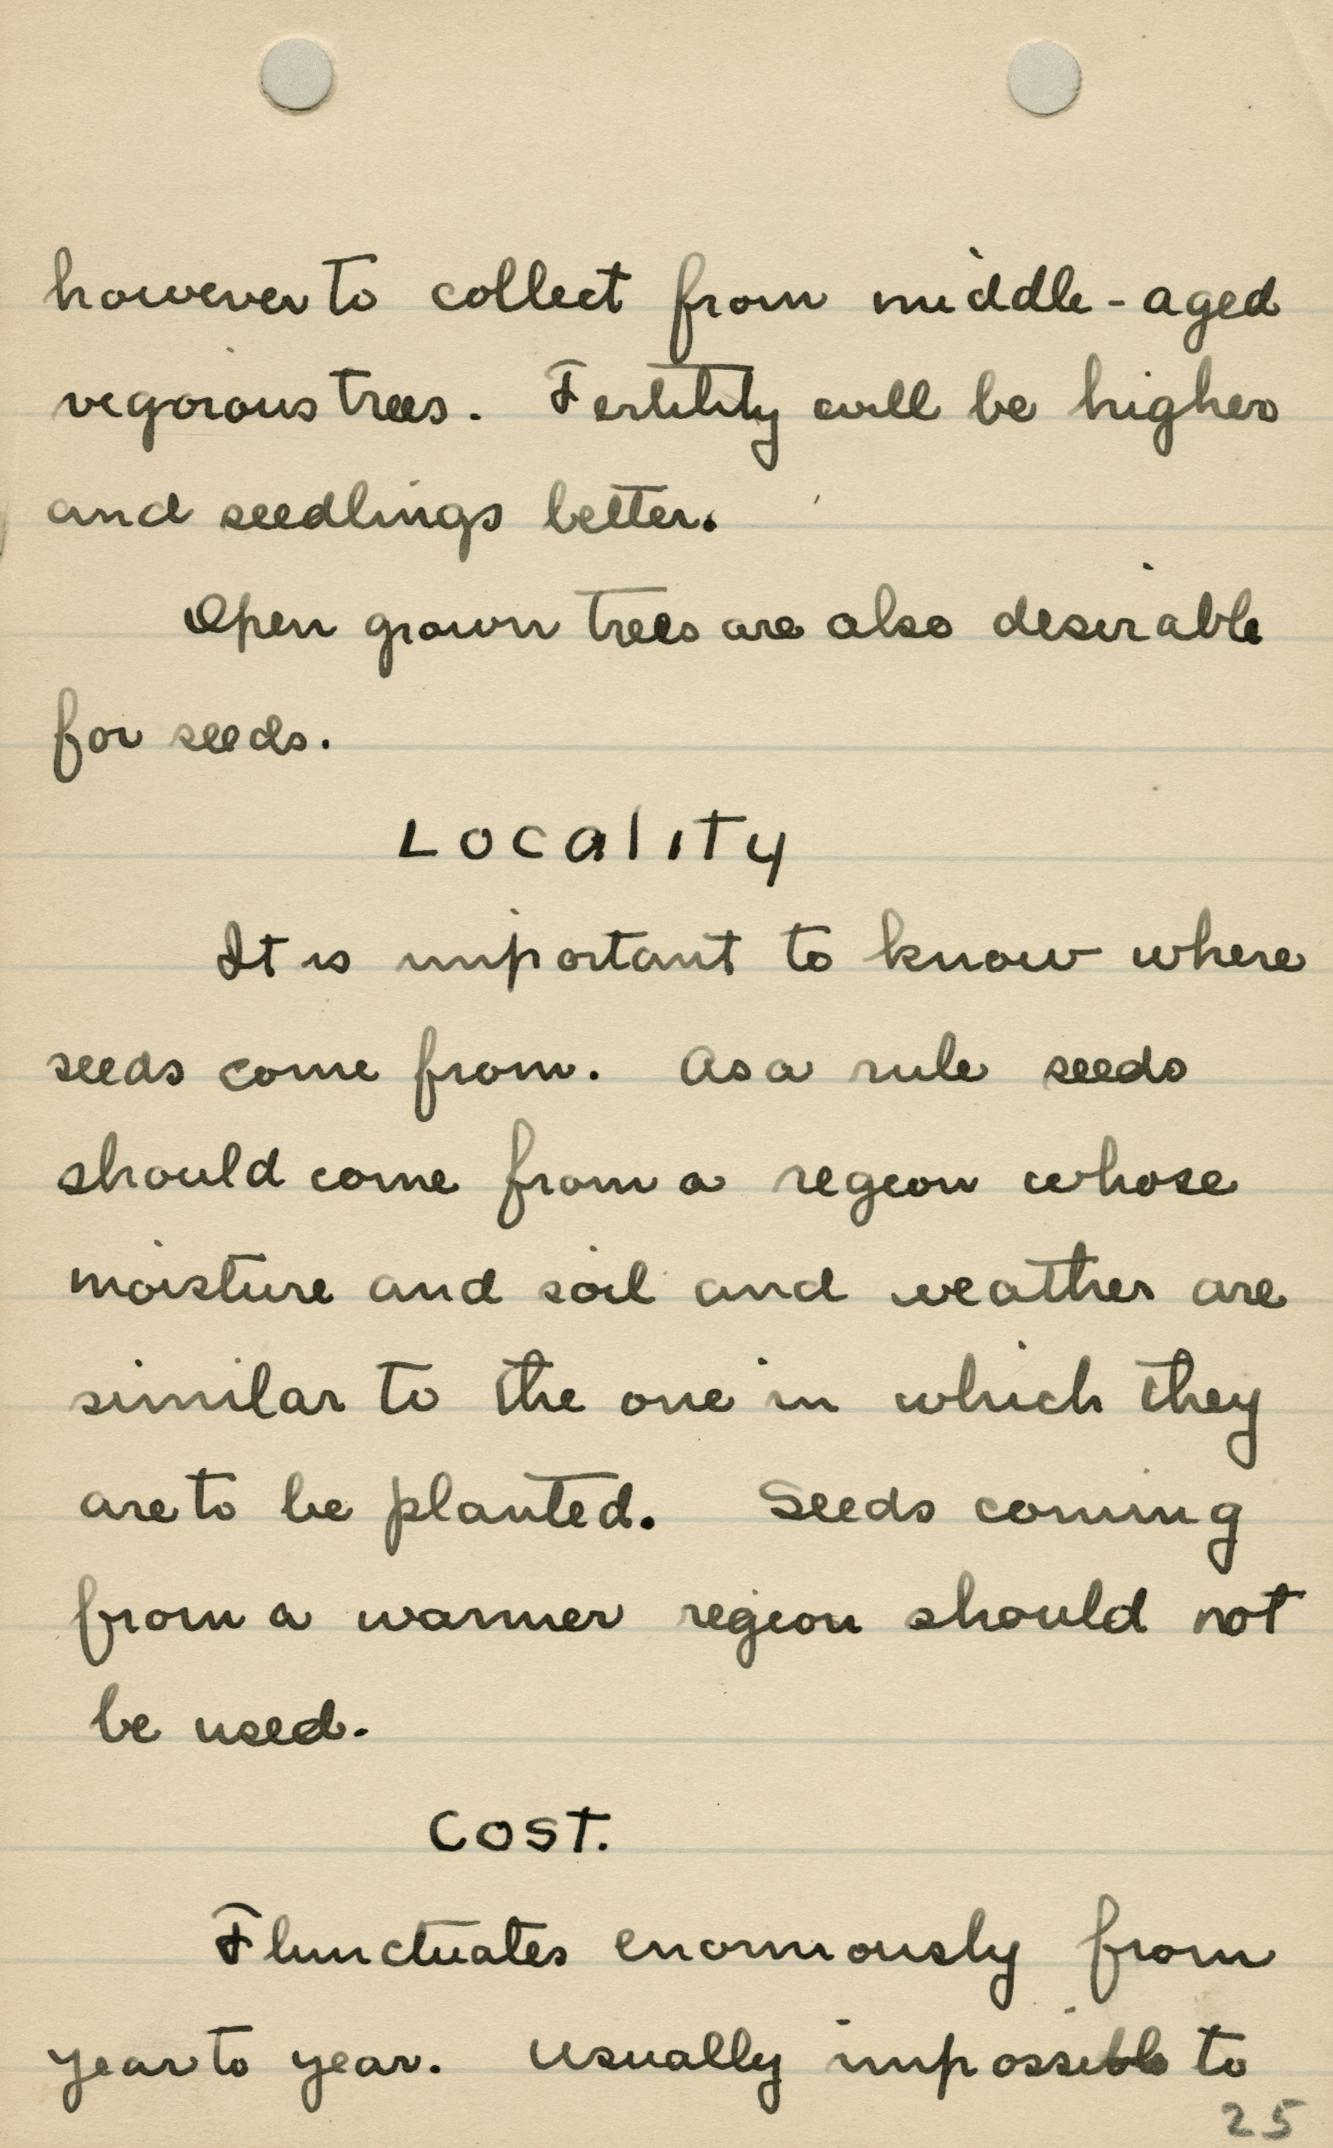 however to collect from middle-aged
vigorous trees. Fertility will be higher
and seedlings better.
Open grown trees are also desirable
for seeds.
Locality
It is important to know where
seeds come from. As a rule seeds
should come from a region whose
moisture and soil and weather are
similar to the one in which they
are to be planted. Seeds coming
from a warmer region should not
be used.
COST.
Flunctuates enormously from
year to year. Usually impossible to
25